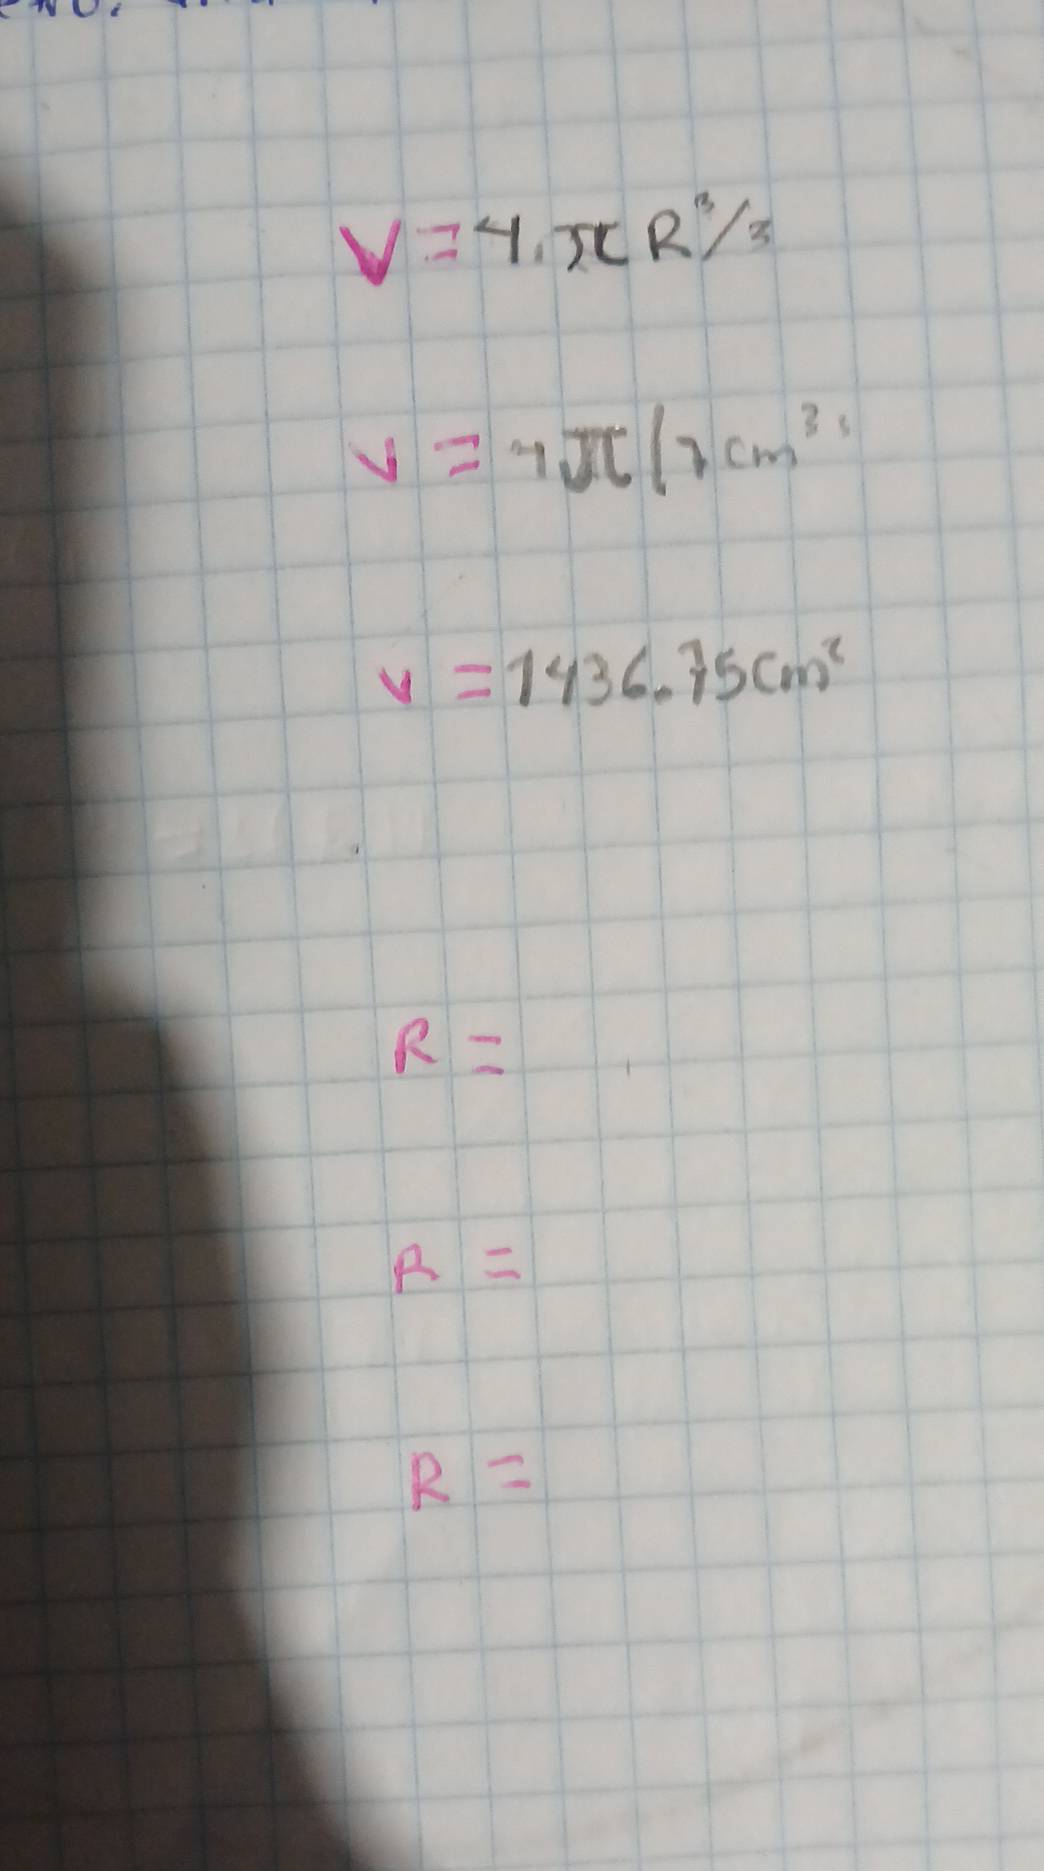 V = 4.π R³/3
V = 4π(7cm³
V = 1436.75cm²
R =
R =
R =